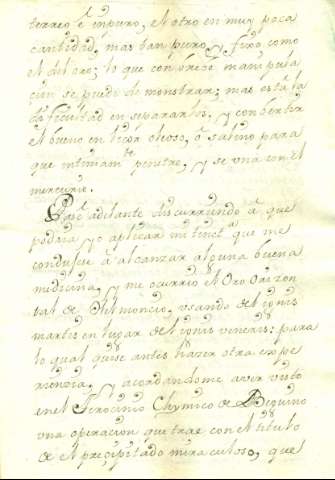 terreo è impuro, el otro en muy poca
cantidad, mas tan puro, y fixo como
el del oro; lo que con breve manipula
cion se puede de monstrar; mas està la
dificultad en separarlos, y conbertir
el bueno en licor oleoso, ò salino para
que intimamte penetre, y se una con el
mercurio.
Pasè adelante discurriendo à que
podria yo aplicar mi que me
conduxese à alcanzar alguna buena
medicina, y me ocurriò el Oro Orizon
tal de usando del ignis
martis en lugar del ignis veneris: para
lo qual quise antes hazer otra expe
riencia, y acordandome aver visto
en el Tirocinio Chymico de Beguino
una operacion que trae con el titulo
de el precipitado miraculoso, que